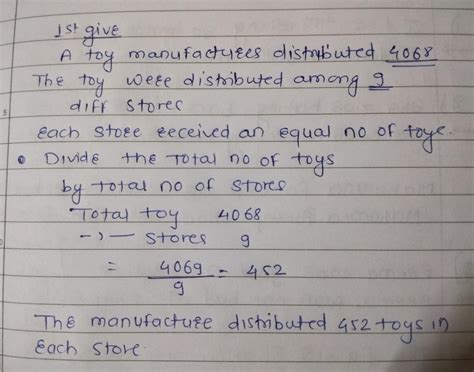 1st give
A toy manufactures distributed 4068
The toy were distributed among 9
diff stores
each store received an equal no of toye.
• Divide the total no of toys
by total no of stores
Total toy 4068
-,- stores 9
= 4069/9 = 452
The manufacture distributed 452 toys in
each store.